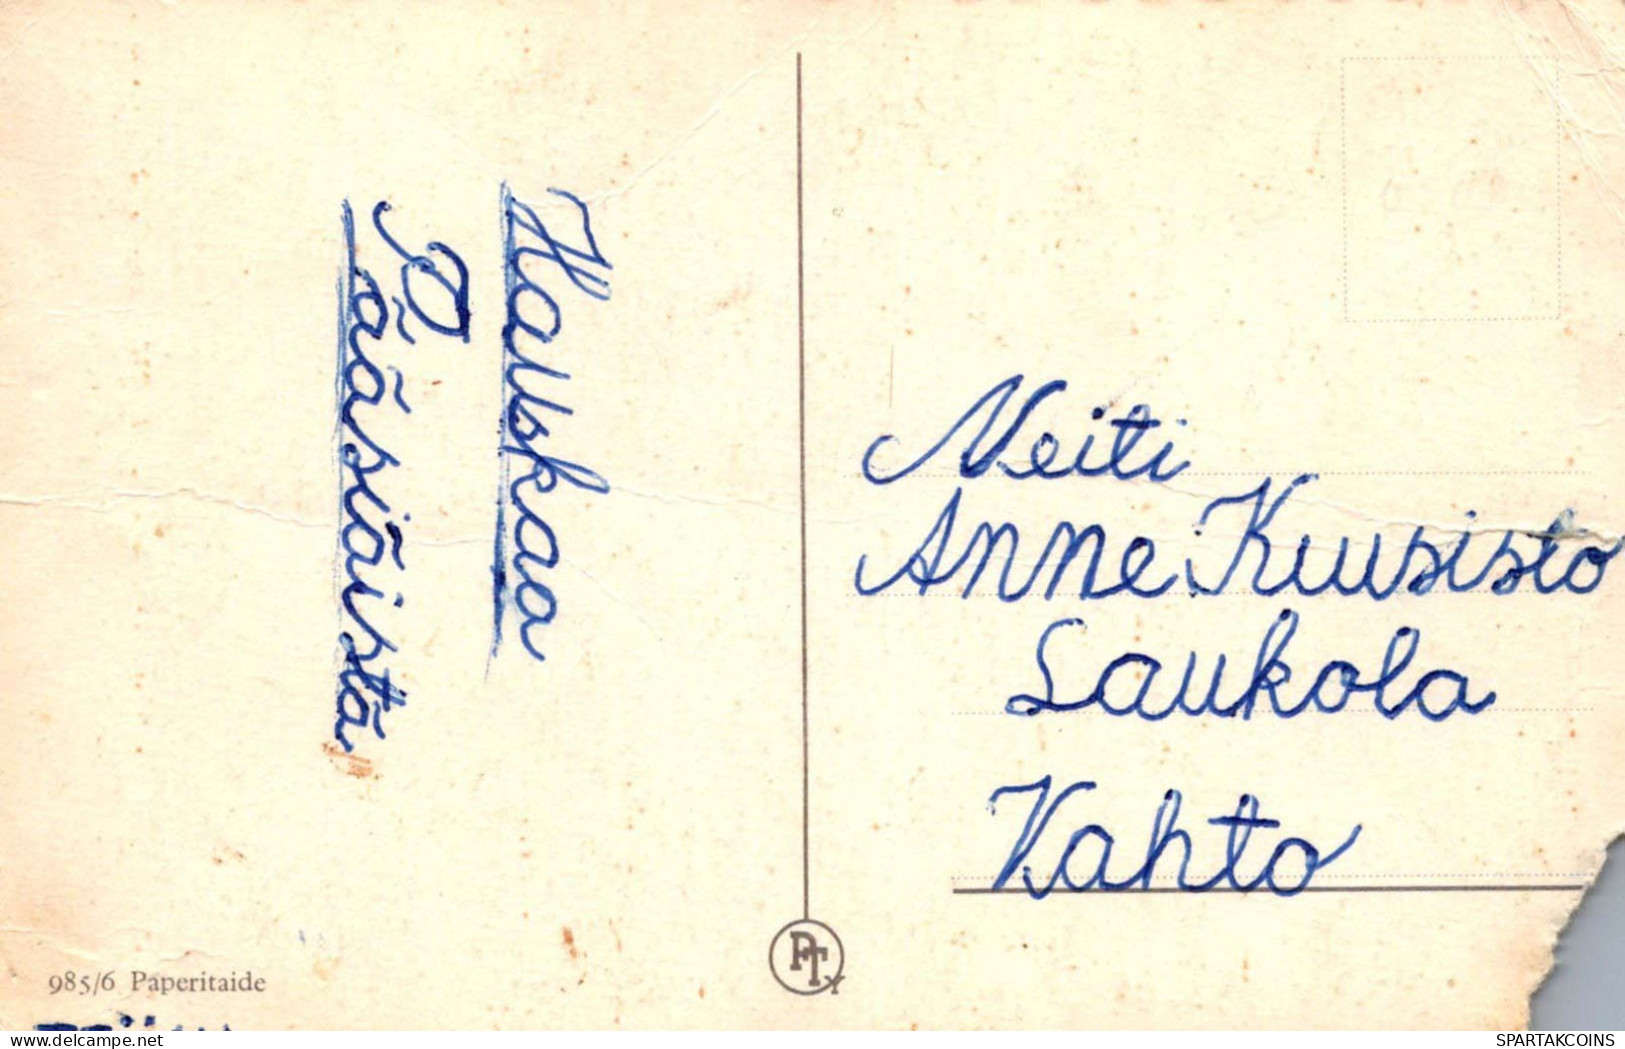 Hauskaa
Pääsiäistä
Neiti
Anne Kuusisto
Laukola
Vahto
985/6 Paperitaide
PTY
delcampe.net
SPARTAKCOINS